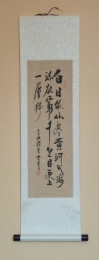 白日依山尽黄河入海
流欲窮千里目更上
一層樓